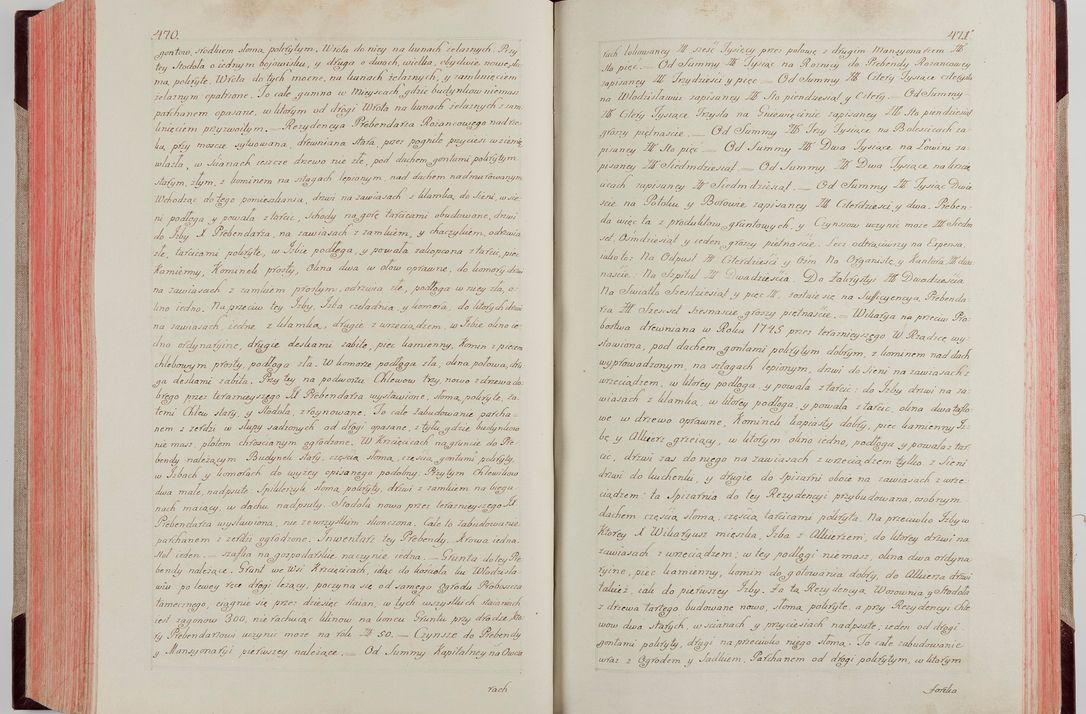 470.
gontow, srodkiem słomą pokrytym. Wrota do niey na kunach żelaznych. Przy
tey Stodoła o iednym boiowisku, y druga o dwoch, wielka, obydwie nowe sło-
mą, pokryte. Wrota do tych mocne, na kunach żelaznych, y zamknięciem
żelaznym opatrzone. To całe gumno w mieyscach gdzie budynkow niemasz
parchanem opasane, w ktorym od drogi Wrota na kunach żelaznych z zam-
knięciem przyzwoitym. — Rezydencya Prebendarza Rożancowego nad rze-
ką, przy moscie sytuowana, drewniana stara, przez pogniłe przyciesi w ziemię
wlazła, w scianach ieszcze drzewo nie złe, pod dachem gontami pokrytym
starym, złym, z kominem na sztagach lepionym, nad dachem nadmurowanym
Wchodząc do tego pomieszkania, drzwi na zawiasach z klamką, do Sieni, w sie-
ni podłoga, y powała z tarcic, schody na gorę tarcicami obudowane, drzwi
do Izby X Prebendarza, na zawiasach z zamkiem, y haczykiem, odrzwia
złe, tarcicami pokryte, w Izbie podłoga, y powała zakopcona z tarcic, piec
kamienny, Kominek prosty, okna dwa w ołow oprawne, do komory drzwi
na zawiasach z zamkiem prostym, odrzwia złe, podłoga w niey zła, o-
kno iedno. Na przeciw tey Izby, Izba czeladnia y komora, do ktorych drzwi
na zawiasach, iedne z klamką, drugie z wrzeciądzem, w Izbie okno ie-
dno ordynaryine, drugie deskami zabite, piec kamienny, Komin z piecem
chlebowym prosty, podłoga zła. W komorze podłoga zła, okna połowa, dru-
ga deskami zabita. Przy tey na podworzu Chlewow trzy, nowo z drzewa do-
brego przez teraznieyszego X Prebendarza wystawione, słomą pokryte, za-
temi Chlew stary, y Stodoła zruynowane. To całe zabudowanie parcha-
nem z żerdzi w słupy sadzonych od drogi opasane, z tyłu gdzie budynkow
nie masz, płotem chroscianym ogrodzone. W Krzcięcicach na gruncie do Pre-
bendy należącym Budynek stary, częscią słomą, częscią gontami pokryty,
w Izbach y komorach do wyzey opisanego podobny. Przy tym Chlewikow
dwa małe, nadpsute. Spiklerzyk słomą pokryty, drzwi z zamkiem na biegu-
nach maiący, w dachu nadpsuty. Stodoła nowa przez teraznieyszego X
Prebendarza wystawiona, nie ze wszystkim skonczona. Całe to zabudowanie
parchanem z żerdzi ogrodzone. Inwentarz tey Prebendy. Krowa iedna.
Stoł ieden. — Szafka na gospodarskie naczynie iedna. — Grunta do tey Pre-
bendy należące. Grunt we Wsi Krzcięcicach, idąc do koscioła ku Włodzisła-
wiu po lewey ręce drogi leżący, poczyna się od samego ogrodu Proboszcza
tamecznego, ciągnie się przez dziesięc staian, w tych wszystkich staianach
iest zagonow 300, nie rachuiąc klinow na koncu Gruntu przy drodze, kto-
ry Prebendarzowi uczynic może na rok ZłP 50. — Czynsze do Prebendy
y Mansyonaryi pierwszey należące. — Od Summy Kapitalney na Owcza-
rach
471
rach lokowaney Zł szesc Tysięcy przez połowę z drugim Mansyonarzem Zł
Sto pięc. — Od Summy Zł Tysiąc na Roznicy do Prebendy Rozancowey
zapisaney Zł Trzydziesci y pięc. — Od Summy Zł Cztery Tysiące czterysta
na Włodzisławiu zapisaney Zł Sto piendziesiąt y Cztery. — Od Summy
Zł Cztery Tysiące Trzysta na Gniewięcinie zapisaney Zł Sto piendziesiąt
groszy piętnascie. — Od Summy Zł Trzy Tysiące na Bolescicach za-
pisaney Zł Sto pięc. — Od Summy Zł Dwa Tysiące na Łowini za-
pisaney Zł Siedmdziesiąt. — Od Summy Zł Dwa Tysiące na Krzcię-
cicach zapisaney Zł Siedmdziesiąt. — Od Summy Zł Tysiąc Dwie-
scie na Potoku y Borowie zapisaney Zł Czterdziesci, y dwa. Preben-
da więc ta z produktow gruntowych, y Czynszow uczynic może Zł Siedm
set, Osmdziesiąt y ieden, groszy piętnascie. Lecz odtrąciwszy na Expensa
iako to: Na Odpust Zł Czterdziesci y Osm. Na Organistę, y Kantora, Zł dwa-
nascie. Na Szpital Zł Dwadziescia. Do Zakrystyi Zł Dwadziescia.
Na Swiatło Szesdziesiąt, y pięc Zł, zostaie się na Sufficyencyą Prebenda-
rza Zł Szesset Szesnascie groszy piętnascie. — Wikarya na przeciw Pro-
bostwa drewniana w Roku 1745 przez teraznieyszego W Rządzcę wy-
stawiona, pod dachem gontami pokrytym dobrym, z kominem nad dach
wyprowadzonym, na sztagach lepionym, drzwi do Sieni na zawiasach z
wrzeciądzem, w ktorey podłoga, y powała z tarcic: do Izby drzwi na za-
wiasach z klamką, w ktorey podłoga, y powała z tarcic, okna dwa taflo-
we w drzewo oprawne, Kominek kapiasty dobry, piec kamienny Iz-
bę y Alkierz grzeiący, w ktorym okno iedno, podłoga y powała z tar-
cic, drzwi zas do niego na zawiasach z wrzeciądzem tylko: z Sieni
drzwi do kuchenki, y drugie do spizarni oboie na zawiasach z wrze-
ciądzem: ta Spizarnia do tey Rezydencyi przybudowana, osobnym
dachem częscią słomą, częscią tarcicami pokryta. Na przeciwko Izby w
Ktorey X Wikaryusz mieszka, Izba z Alkierzem, do ktorey drzwi na
zawiasach z wrzeciądzem; w tey podłogi niemasz, okna dwa ordyna-
ryine, piec kamienny, komin do gotowania dobry, do Alkierza drzwi
takież, iak do pierwszey Izby. Za tą Rezydencyą Wozownia y Stodoła
z drzewa tartego budowane nowo, słomą pokryte, a przy Rezydencyi Chle-
wow dwa starych, w scianach y przyciesiach nadpsute, ieden od drogi
gontami pokryty, drugi na przeciwko niego słomą. To całe zabudowanie
wraz z Ogrodem y Sadkiem, Parchanem od drogi pokrytym, w ktorym
fortka